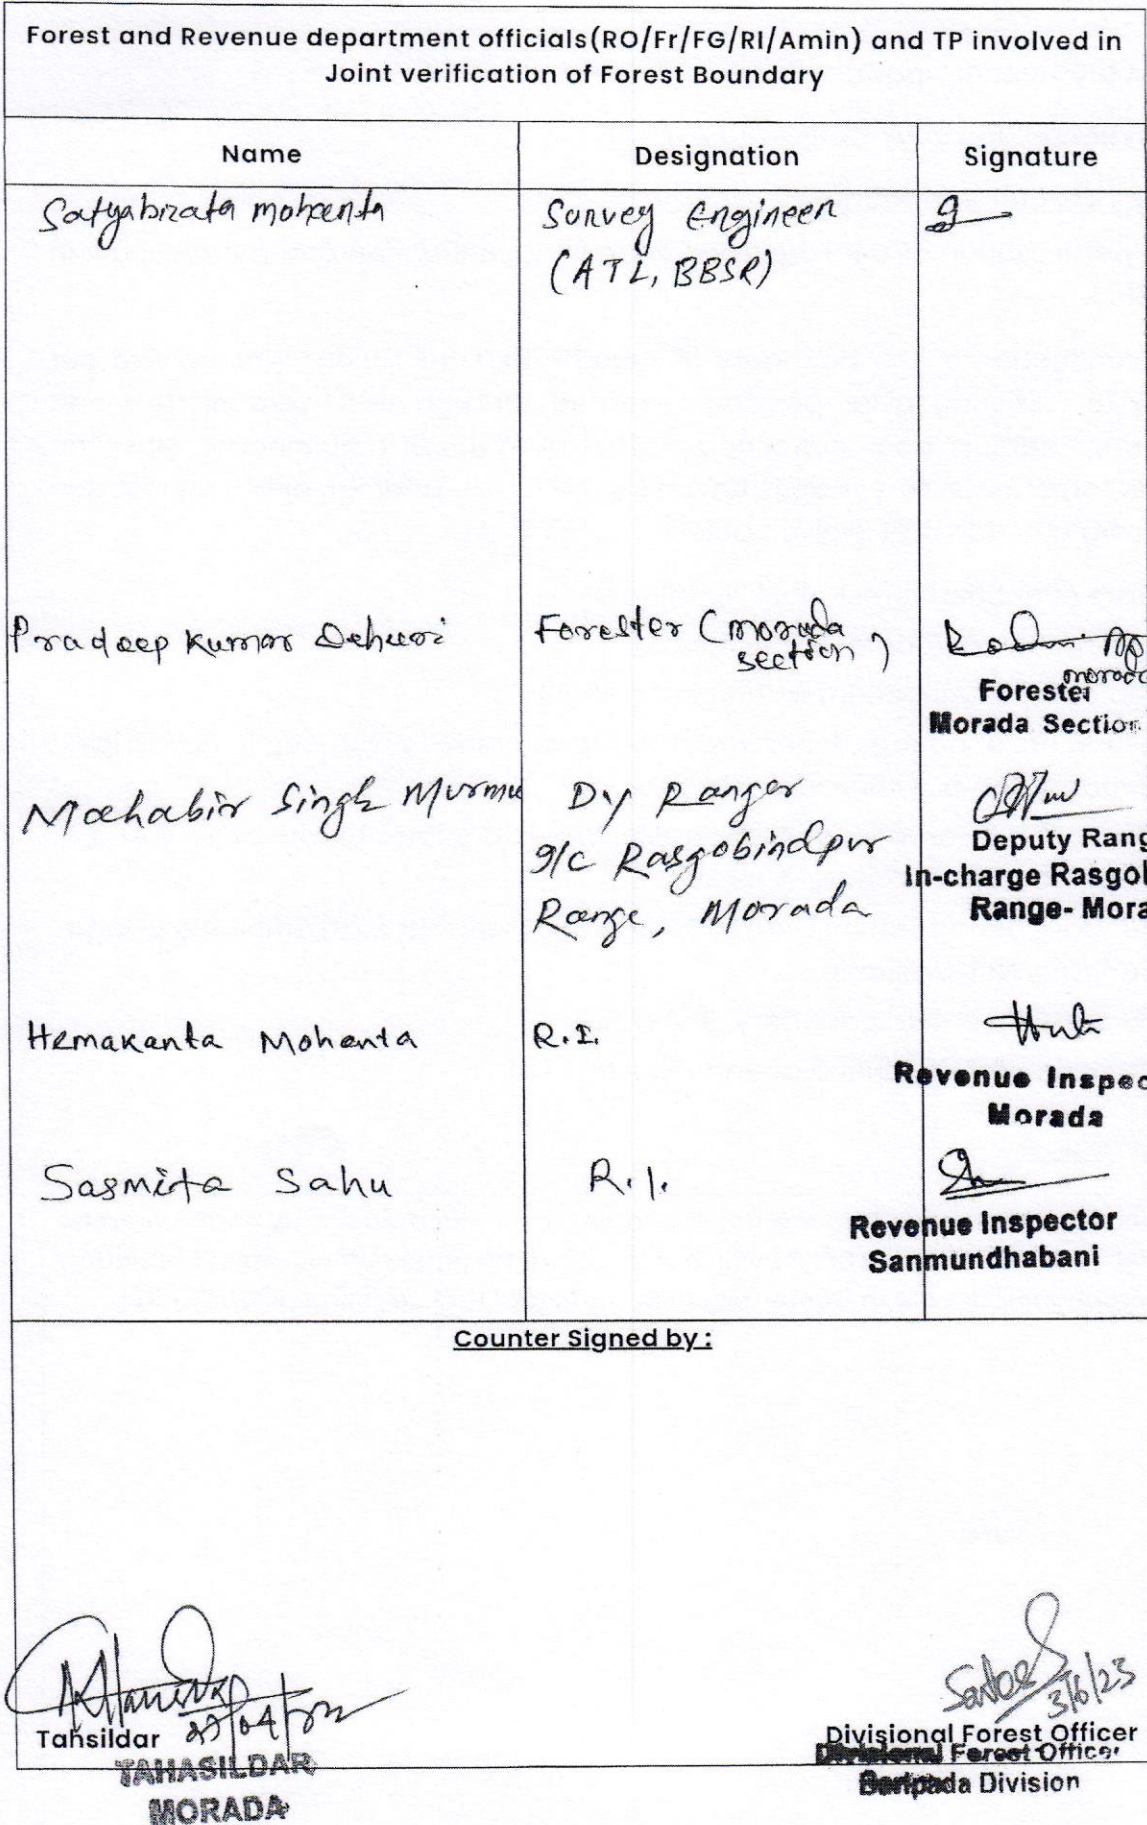 Forest and Revenue department officials(RO/Fr/FG/RI/Amin) and TP involved in
Joint verification of Forest Boundary
Name Designation Signature
Satyabrata mohanta Survey Engineer
(ATL, BBSR)
Pradeep Kumar Dehuri Forester (morada
section)
morada
Forester
Morada Section
Mahabir Singh Murmu Dy Ranger
I/C Rasgobindpur
Range, Morada
Deputy Rang
In-charge Rasgol
Range- Mora
Hemakanta Mohanta R.I.
Revenue Inspec
Morada
Sasmita Sahu R.I.
Revenue Inspector
Sanmundhabani
Counter Signed by :
3/6/23
Tahsildar Divisional Forest Officer
TAHASILDAR Divisional Forest Officer
MORADA Baripada Division